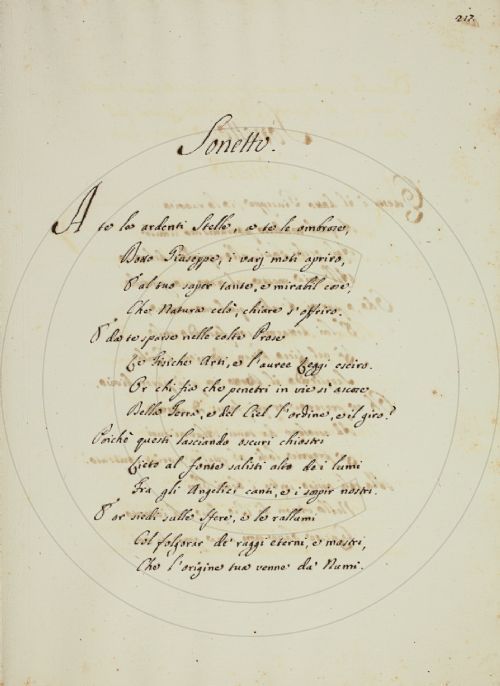 217.
Sonetto.
A te le ardenti Stelle, a te le ombrose,
Dotto Giuseppe, i varj moti apriro,
E al tuo saper tante, e mirabil cose,
Che Natura celò, chiare s'offriro.
E da te sparse nelle colte Prose
Le Fisiche Arti, e l'auree Leggi esciro.
Or chi fia che penetri in vie sì ascose
Della Terra, e del Ciel l'ordine, e il giro?
Poichè questi lasciando oscuri chiostri
Lieto al fonte salisti alto de i lumi
Fra gli Angelici canti, e i sospir nostri.
E or siedi sulle Sfere, e le rallumi
Col folgorar de' raggi eterni, e mostri,
Che l'origine tua venne da' Numi.